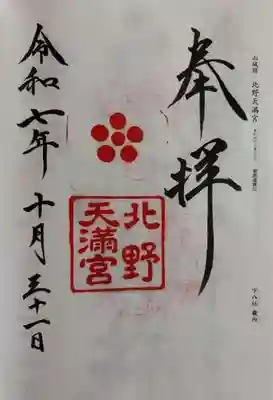 奉拝
北野
天満宮
令和七年 十月 三十一日
山城国 北野天満宮